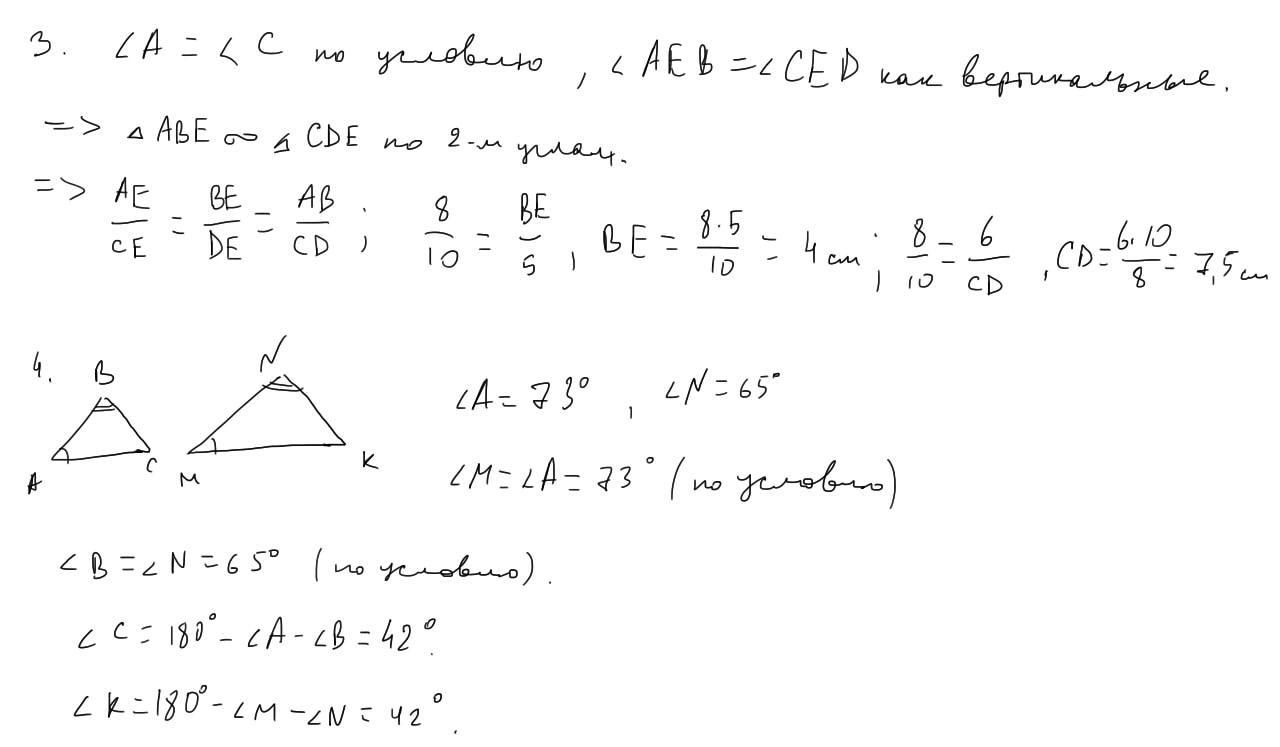 3. ∠A = ∠C по условию, ∠AEB = ∠CED как вертикальные.
=> △ABE ∞ △CDE по 2-м углам.
=> AE/CE = BE/DE = AB/CD; 8/10 = BE/5, BE = 8·5/10 = 4 см; 8/10 = 6/CD, CD = 6·10/8 = 7,5 см
4.
B
N
A
C
M
K
∠A = 73°, ∠N = 65°
∠M = ∠A = 73° (по условию)
∠B = ∠N = 65° (по условию).
∠C = 180° - ∠A - ∠B = 42°.
∠K = 180° - ∠M - ∠N = 42°.